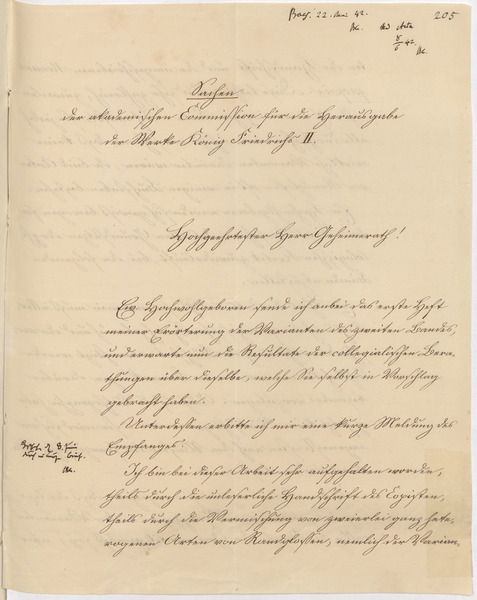 22. Mai 42.
205
ad Acta
Bk.
Sachen
der akademischen Commission für die Herausgabe
der Werke König Friedrichs II.
Hochgeehrtester Herr Geheimerath!
Ew. Hochwohlgeboren sende ich anbei das erste Heft
meiner Erörterung der Varianten des zweiten Bandes,
und erwarte nun die Resultate der collegialischen Bera-
thungen über dieselbe, welche Sie selbst in Vorschlag
gebracht haben.
Unterdessen erbitte ich mir eine kurze Meldung des
Empfanges.
Bk.
Ich bin bei dieser Arbeit sehr aufgehalten worden,
theils durch die unleserliche Handschrift des Copisten,
theils durch die Vermischung von zweierlei ganz hete-
rogenen Arten von Randglossen, nemlich der Varian-